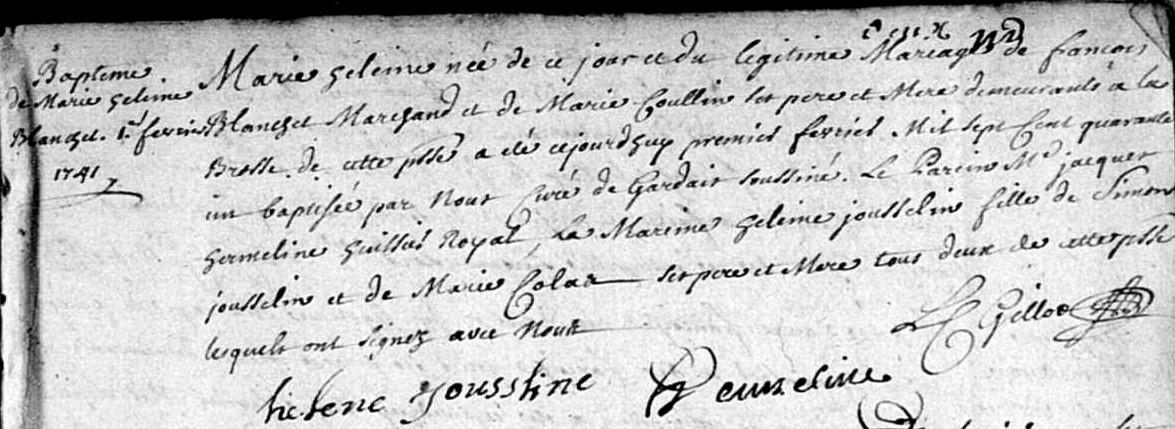 Bapteme.
de Marie heleine
Blanchet. 1.er fevrier
1741
Marie heleine née de ce jour et du legitime Mareage de francois
Blanchet Marchand et de Marie Coullin ses pere et Mere demeurants a la
Brosse de cette psse a été cejourdhuy premier fevrier Mil sept Cent quarante
un baptisée par Nous Curé de Gardais soussiné. Le Parein Mr jacques
hermeline huissier Royal, La Mareine heleine jousselin fille de Simon
jousselin et de Marie Colas ses pere et Mere tous deux de cette psse
lesquels ont signez avec Nous
helene jousseline hermeline